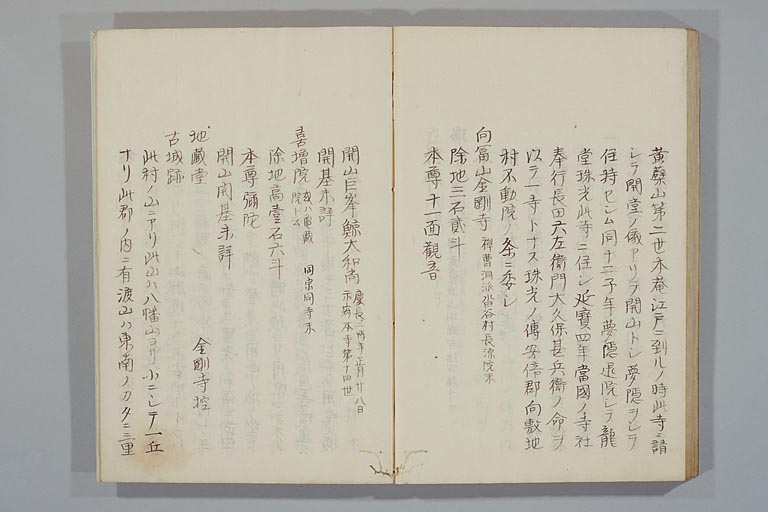 黄檗山第二世木菴江戸ニ到ルノ時此寺ニ請
シテ開堂ノ儀アリテ開山トシ夢隠ヲシテ
住持セシム同十二子年夢隠退院シテ龍
堂珠光此寺ニ住シ延寶四年當國ノ寺社
奉行長田六左衛門大久保甚兵衛ノ命ヲ
以テ一寺トナス珠光ノ傳安倍郡向敷地
村不動院ノ条ニ委シ
向冨山金剛寺 禅曹洞派沓谷村長源院末
除地三石貮斗
本尊十一面観音
開山巨峯鯨大和尚 慶長二丙年正月廿八日
示寂本寺第十四世
開基未詳
喜増院 或ハ亊蔵
院ト云 同宗同寺末
除地高壹石六斗
本尊彌陀
開山開基未詳
地蔵堂 金剛寺控
古城跡
此村ノ山ニアリ此山ハ八幡山ヨリ小ニシテ一丘
ナリ此郡ノ内ニ有渡山ハ東南ノカタニ三里